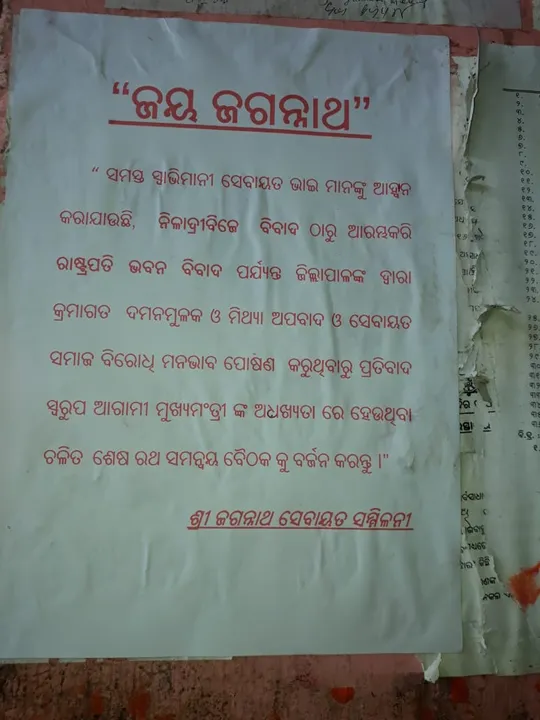 “ଜୟ ଜଗନ୍ନାଥ”
“ ସମସ୍ତ ସ୍ୱାଭିମାନୀ ସେବାୟତ ଭାଇ ମାନଙ୍କୁ ଆହ୍ୱାନ
କରାଯାଉଛି, ନିଳାଦ୍ରୀବିଜେ ବିବାଦ ଠାରୁ ଆରମ୍ଭକରି
ରାଷ୍ଟ୍ରପତି ଭବନ ବିବାଦ ପର୍ଯ୍ୟନ୍ତ ଜିଲ୍ଲାପାଳଙ୍କ ଦ୍ୱାରା
କ୍ରମାଗତ ଦମନମୁଳକ ଓ ମିଥ୍ୟା ଅପବାଦ ଓ ସେବାୟତ
ସମାଜ ବିରୋଧି ମନଭାବ ପୋଷଣ କରୁଥିବାରୁ ପ୍ରତିବାଦ
ସ୍ୱରୁପ ଆଗାମୀ ମୁଖ୍ୟମଂତ୍ରୀ ଙ୍କ ଅଧଖ୍ୟତା ରେ ହେଉଥିବା
ଚଳିତ ଶେଷ ରଥ ସମନ୍ୱୟ ବୈଠକ କୁ ବର୍ଜନ କରନ୍ତୁ ।”
ଶ୍ରୀ ଜଗନ୍ନାଥ ସେବାୟତ ସମ୍ମିଳନୀ